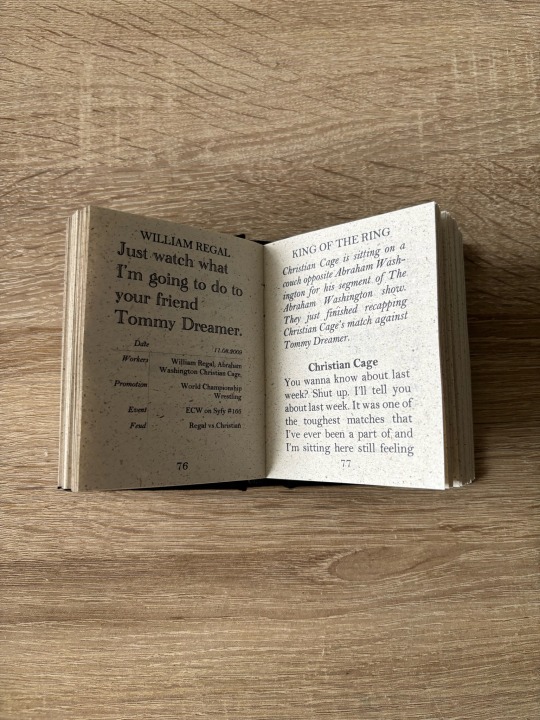 WILLIAM REGAL
Just watch what
I'm going to do to
your friend
Tommy Dreamer.
Date 11.08.2009
Workers William Regal, Abraham
Washington Christian Cage,
Promotion World Championship
Wrestling
Event ECW on Syfy #166
Feud Regal vs Christian
76
KING OF THE RING
Christian Cage is sitting on a
couch opposite Abraham Wash-
ington for his segment of The
Abraham Washington show.
They just finished recapping
Christian Cage's match against
Tommy Dreamer.
Christian Cage
You wanna know about last
week? Shut up. I'll tell you
about last week. It was one of
the toughest matches that
I've ever been a part of and
I'm sitting here still feeling
77